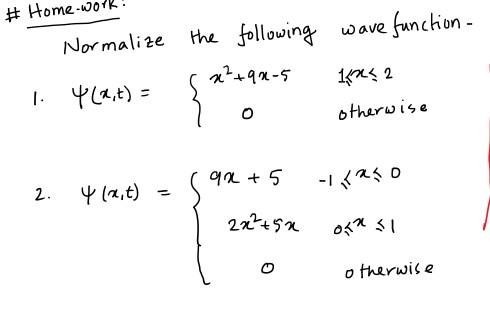 # Home-work:
Normalize the following wave function-
1. Ψ(x,t) = { x²+9x-5 1≤x≤2
0 otherwise
2. Ψ(x,t) = { 9x + 5 -1≤x≤0
2x²+5x 0≤x≤1
0 otherwise